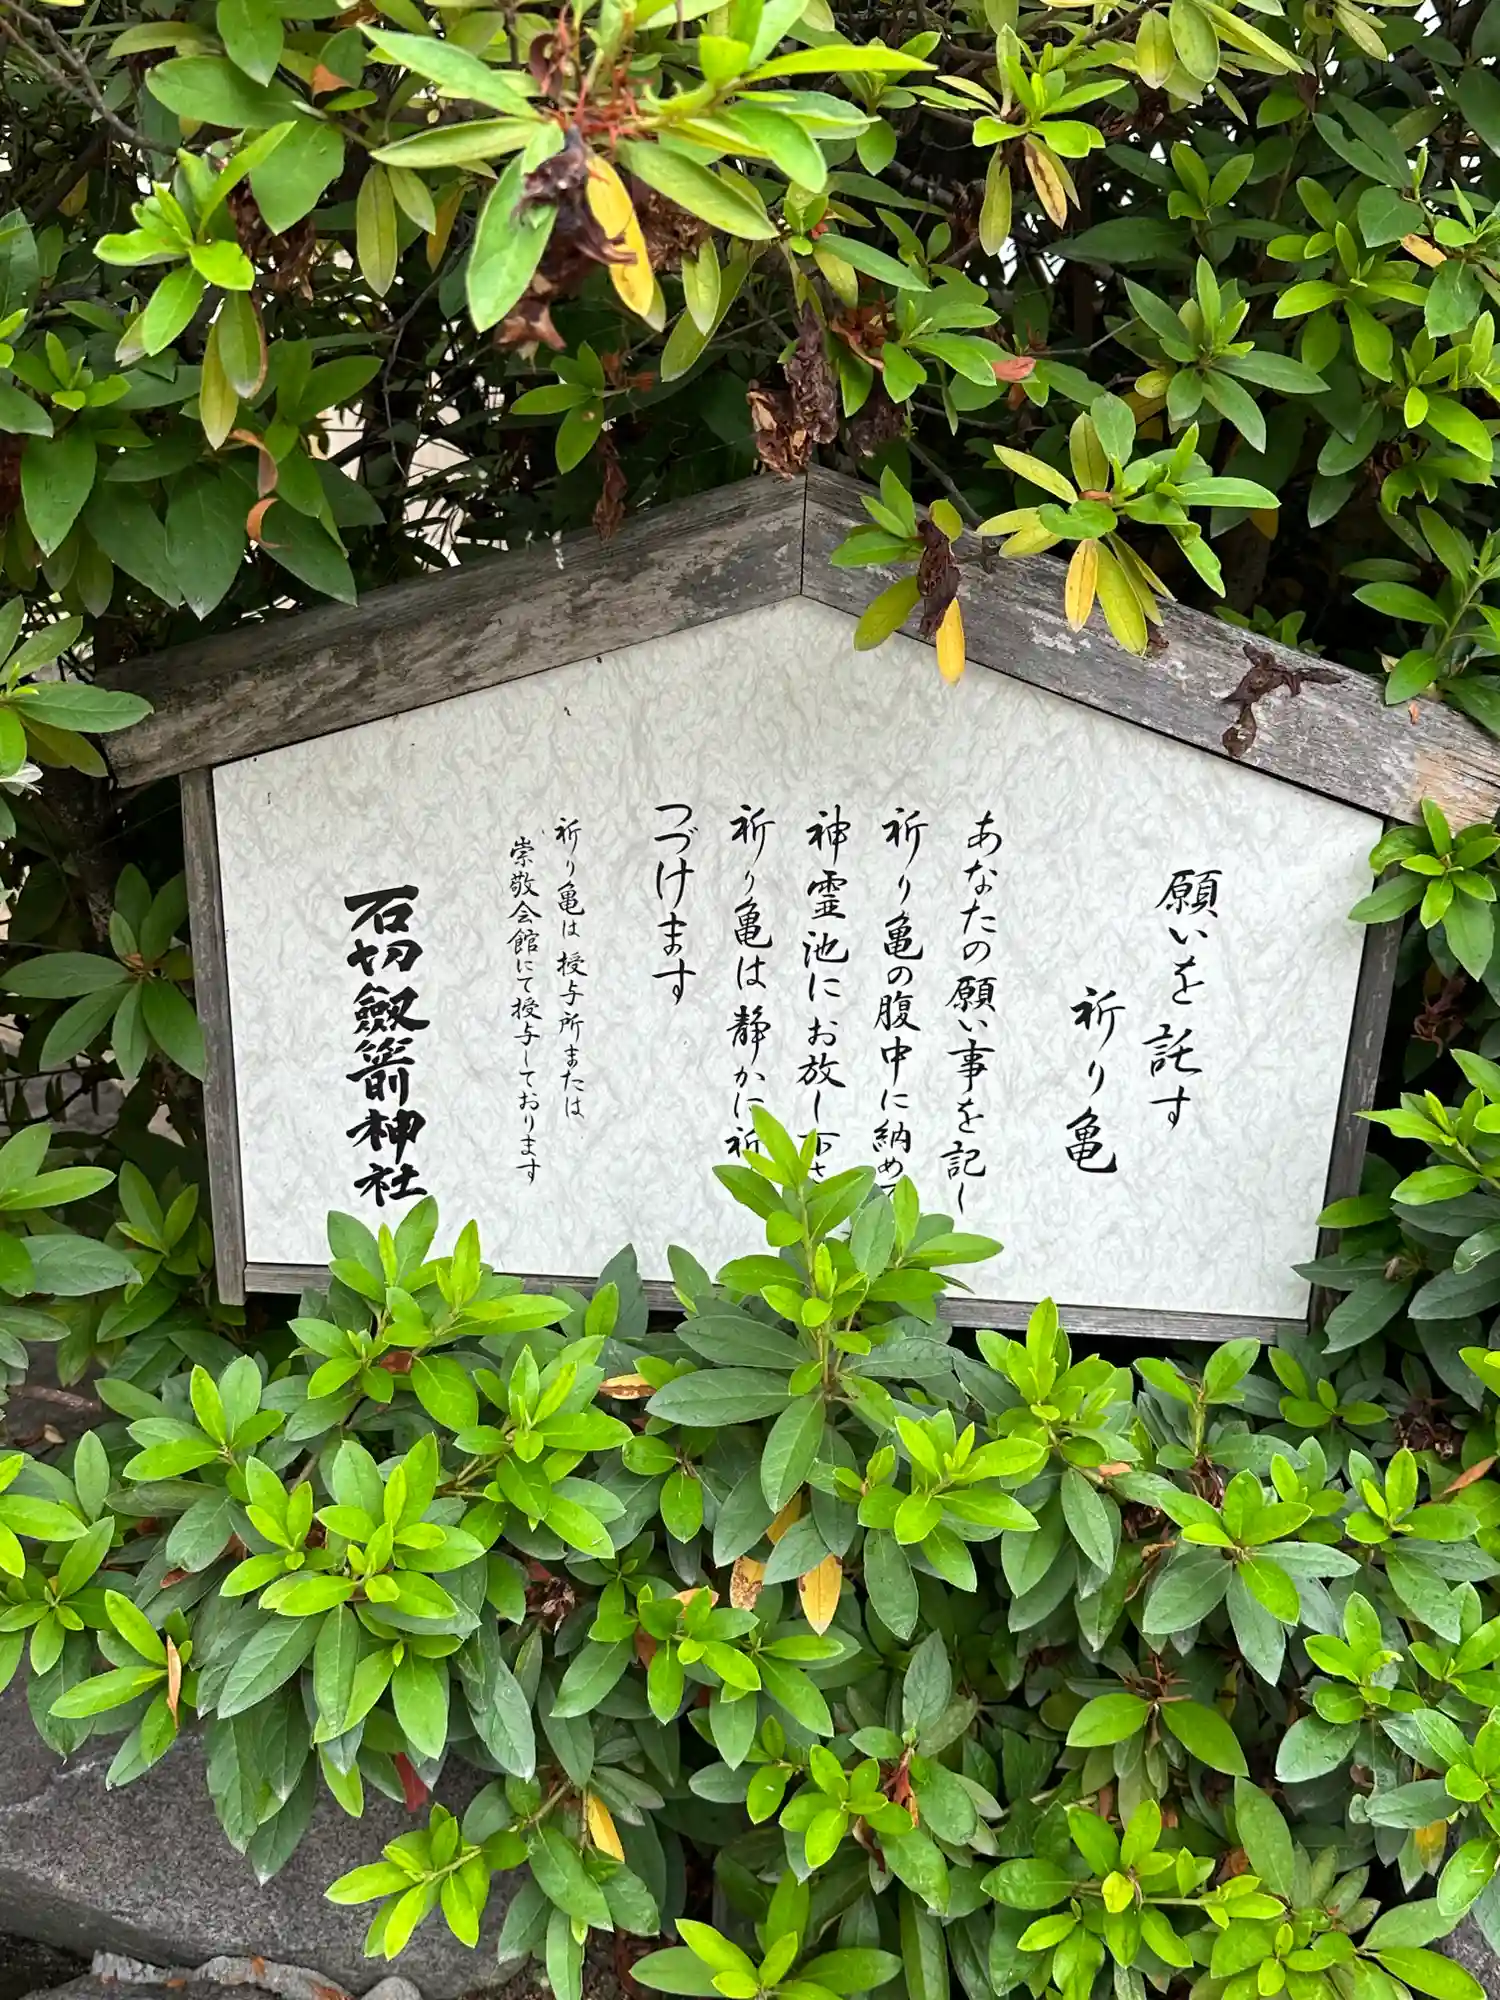 願いを託す
祈り亀
あなたの願い事を記し
祈り亀の腹中に納めて
神霊池にお放し下さ
祈り亀は静かに祈
つづけます
祈り亀は授与所または
崇敬会館にて授与しております
石切劔箭神社